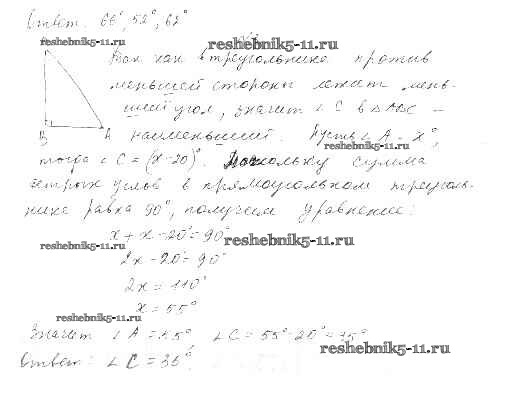 Ответ: 66°, 52°, 62°
reshebnik5-11.ru
Так как в треугольнике против
reshebnik5-11.ru
меньшей стороны лежит мень-
ший угол, значит ∠C в ΔABC –
B A наименьший. Пусть ∠A = x°,
reshebnik5-11.ru
тогда ∠C = (x-20)°. Поскольку сумма
острых углов в прямоугольном треуголь-
нике равна 90°, получаем уравнение:
x + x - 20° = 90°
reshebnik5-11.ru reshebnik5-11.ru
2x - 20° = 90°
2x = 110°
x = 55°
reshebnik5-11.ru
Значит ∠A = 55°, ∠C = 55° - 20° = 35°
reshebnik5-11.ru
Ответ: ∠C = 35°.